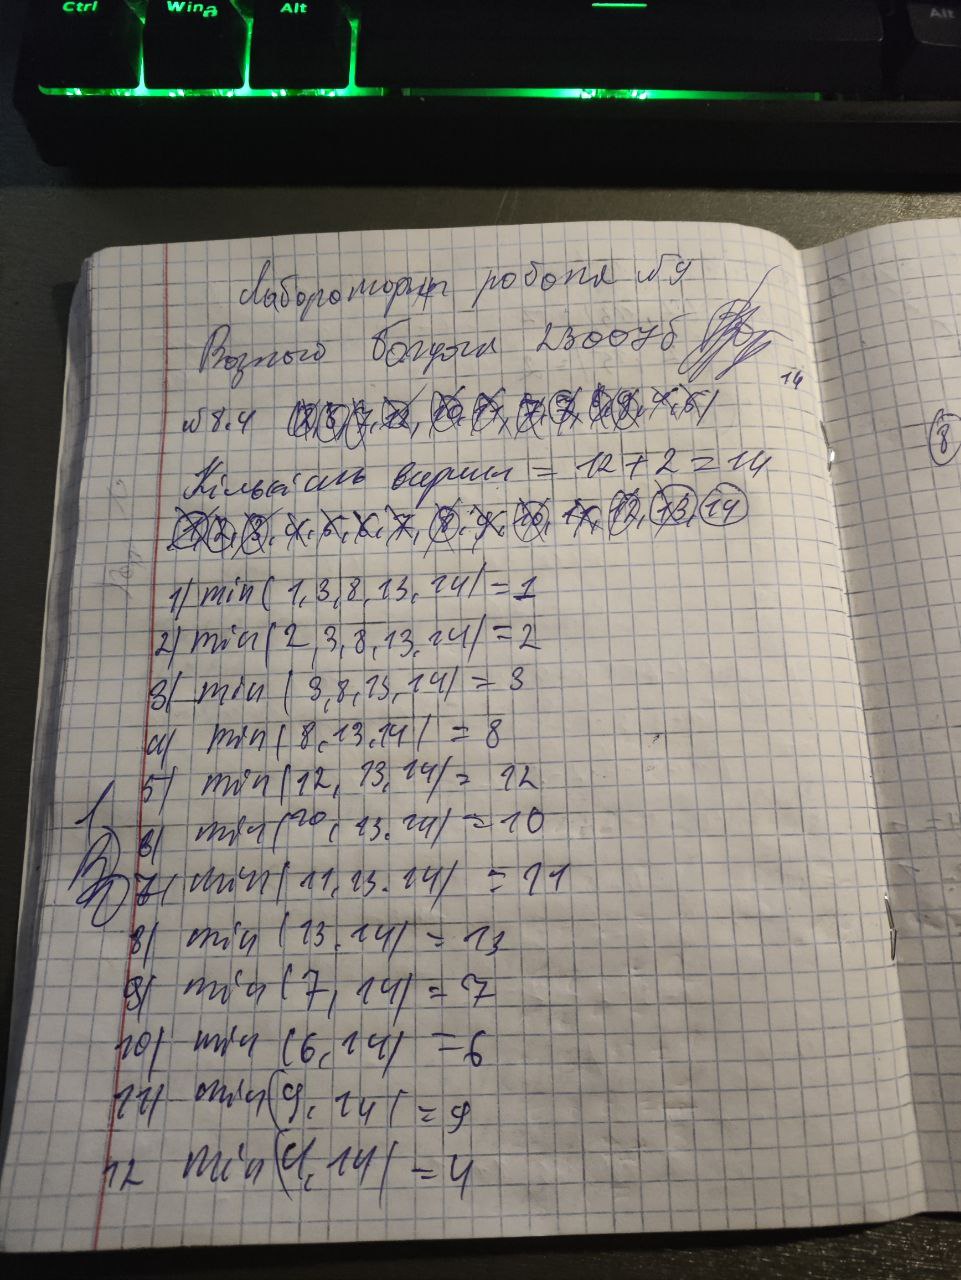 Ctrl Win Alt Alt
Лабораторна робота №9
Возного Богдана 23007б
14
№8.4
8
Кількість вершин = 12 + 2 = 14
1, 2, 3, 4, 5, 6, 7, 8, 9, 10, 11, 12, 13, 14
1) min( 1, 3, 8, 13, 14) = 1
2) min( 2, 3, 8, 13, 14) = 2
3) min ( 3, 8, 13, 14) = 3
4) min ( 8, 13, 14) = 8
5) min (12, 13, 14) = 12
6) min (10, 13. 14) = 10
7) min ( 11, 13. 14) = 11
8) min (13. 14) = 13
9) min (7, 14) = 7
10) min (6, 14) = 6
11) min (9, 14) = 9
12 min (4, 14) = 4